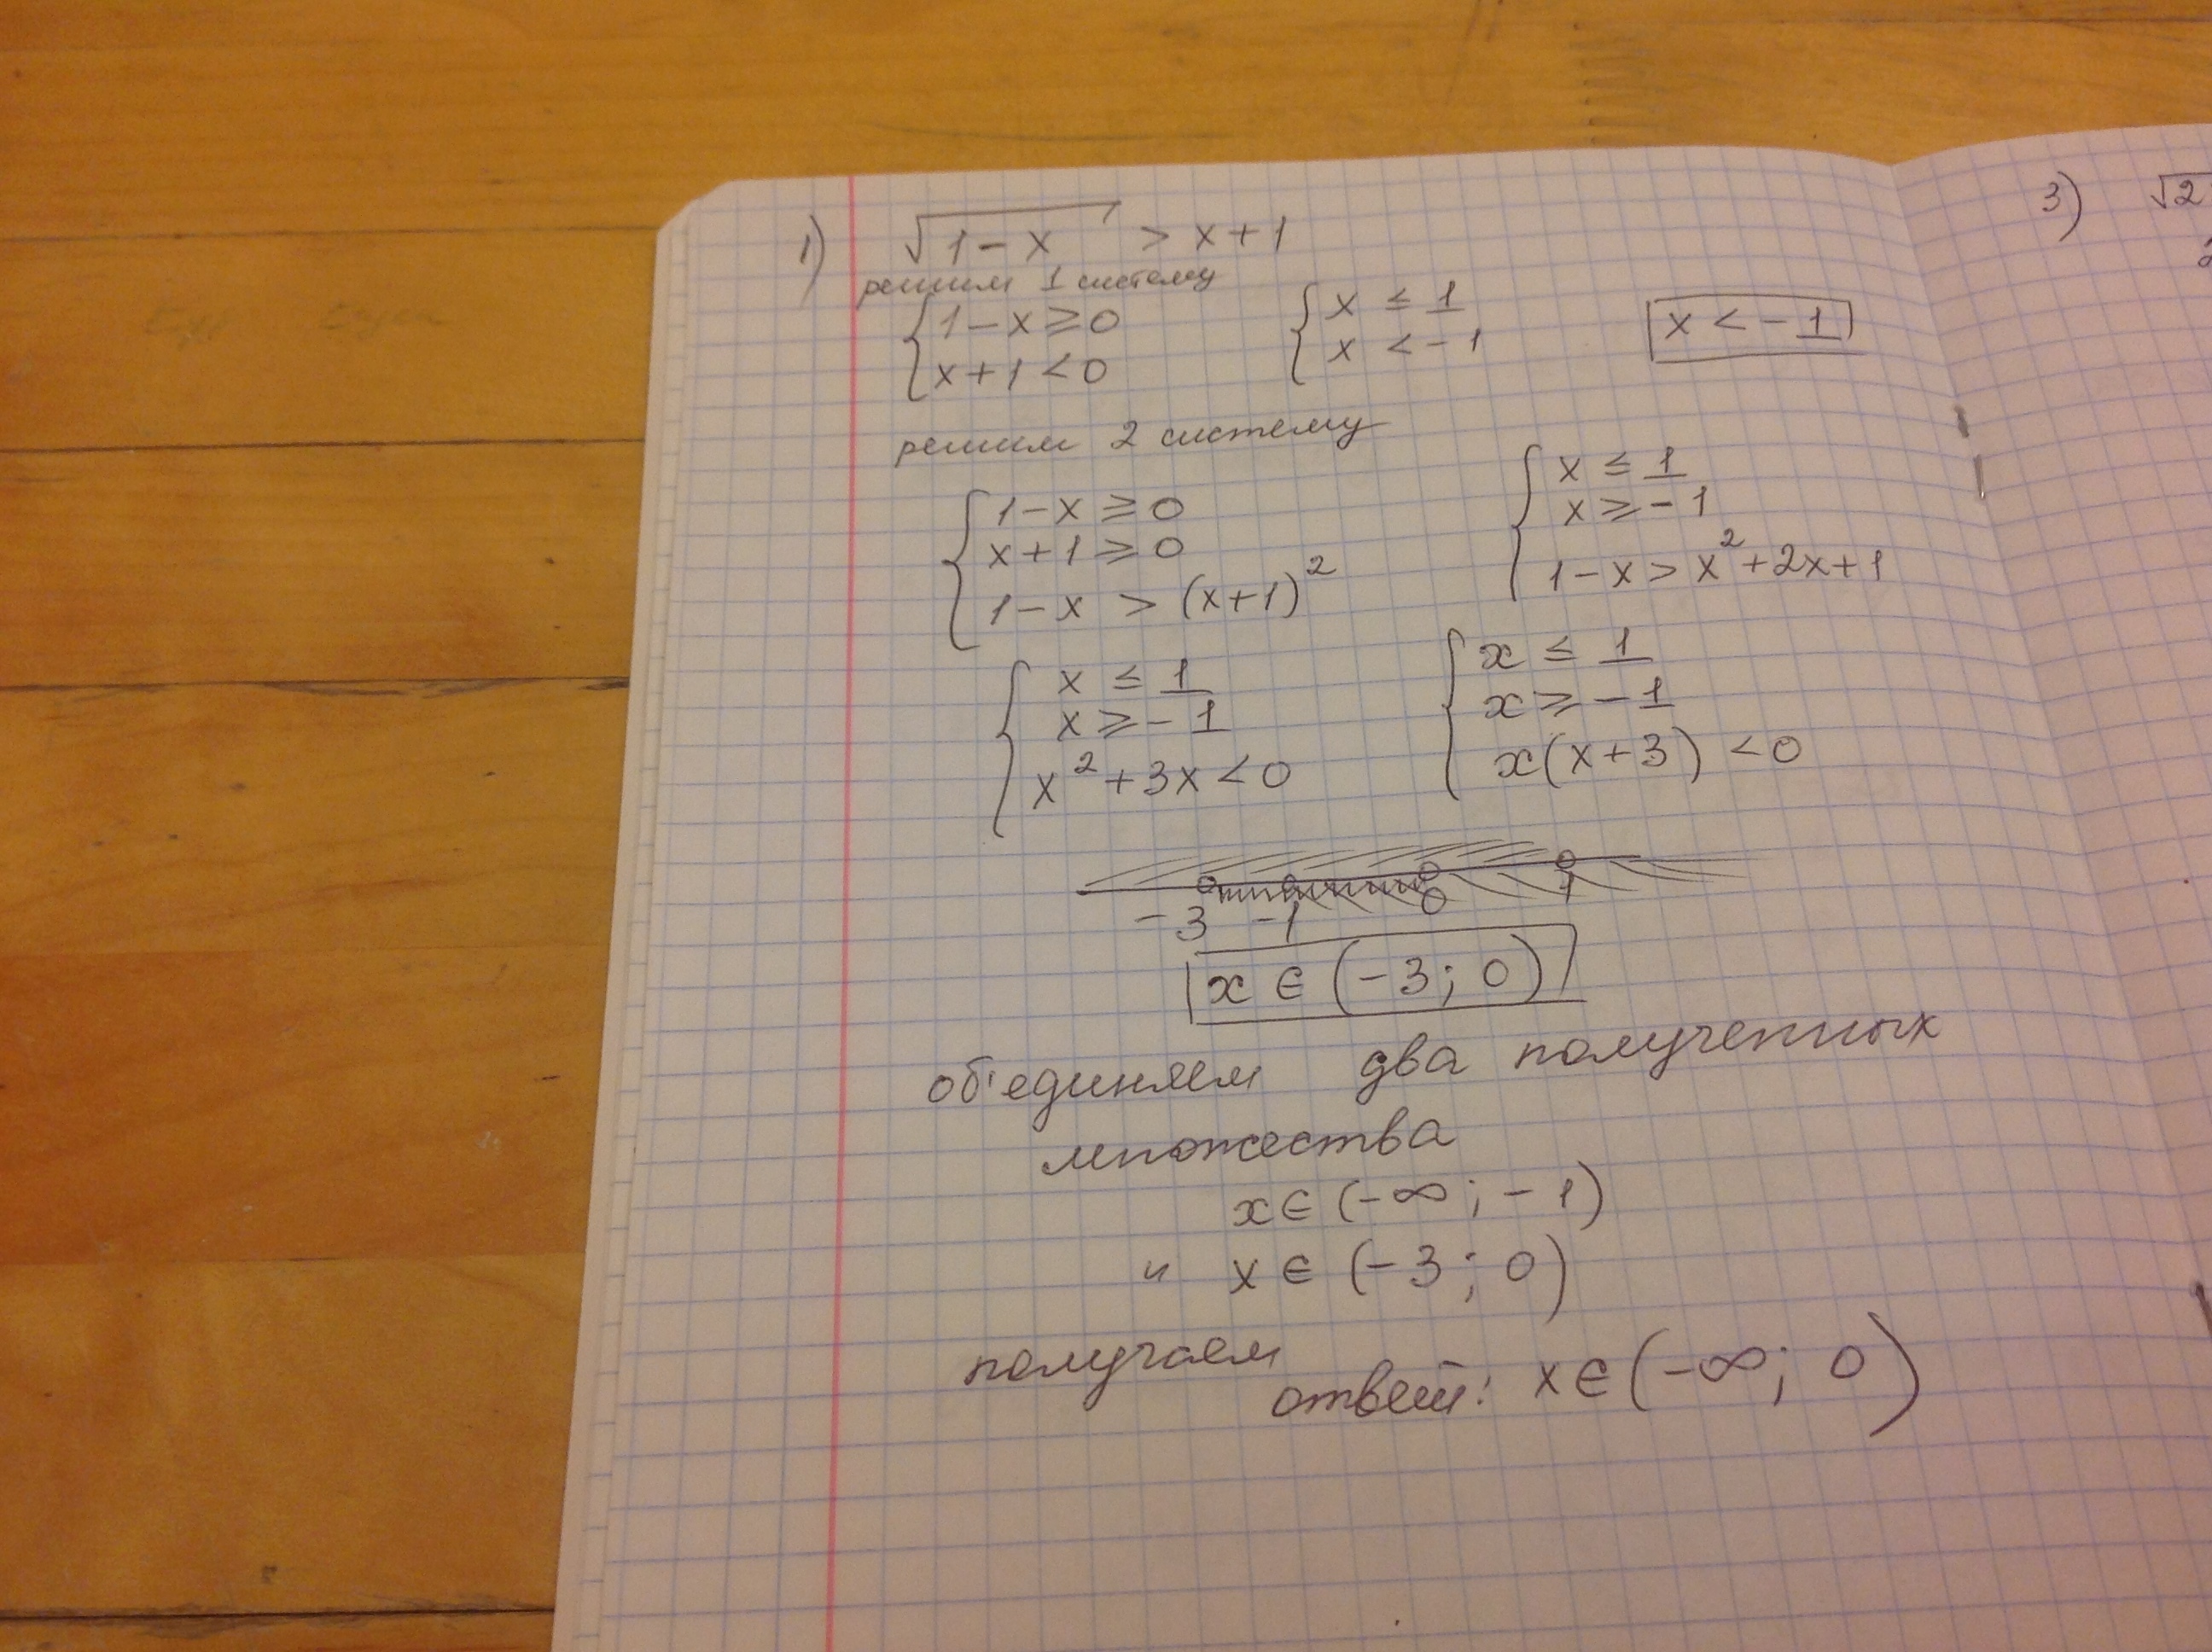 1) √1-x > x+1
решим 1 систему
{ 1-x ≥ 0 { x ≤ 1
x+1 < 0 x < -1 x < -1
решим 2 систему
{ 1-x ≥ 0 { x ≤ 1
x+1 ≥ 0 x ≥ -1
1-x > (x+1)² 1-x > x²+2x+1
{ x ≤ 1 { x ≤ 1
x ≥ -1 x ≥ -1
x²+3x < 0 x(x+3) < 0
-3 -1 0 1
x ∈ (-3; 0)
об'единяем два полученных
множества
x ∈ (-∞; -1)
и x ∈ (-3; 0)
получаем
ответ: x ∈ (-∞; 0)
3) √2